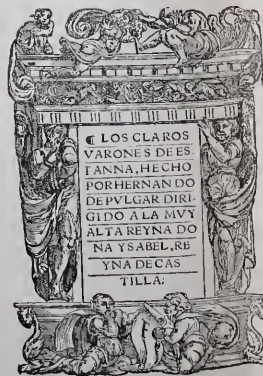 ¶ LOS CLAROS
VARONES DE ES
PANNA, HECHO
POR HERNANDO
DE PVLGAR DIRI
GIDO A LA MVY
ALTA REYNA DO
NA YSABEL, RE
YNA DE CAS
TILLA: